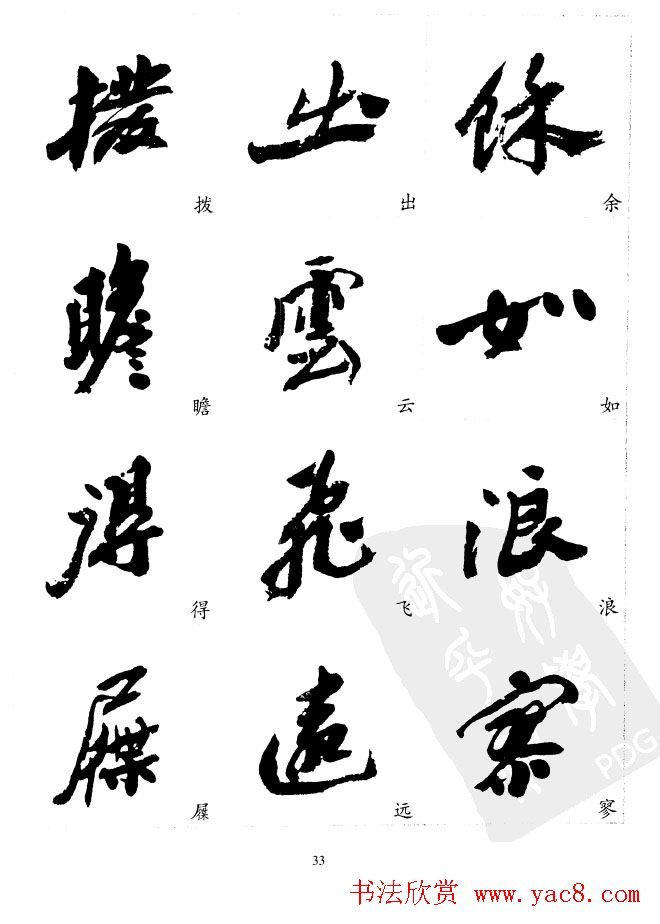 餘 余
如 如
浪 浪
寥 寥
出 出
雲 云
飛 飞
遠 远
撥 拨
瞻 瞻
得 得
屧 屧
PDG
33
书法欣赏 www.yac8.com